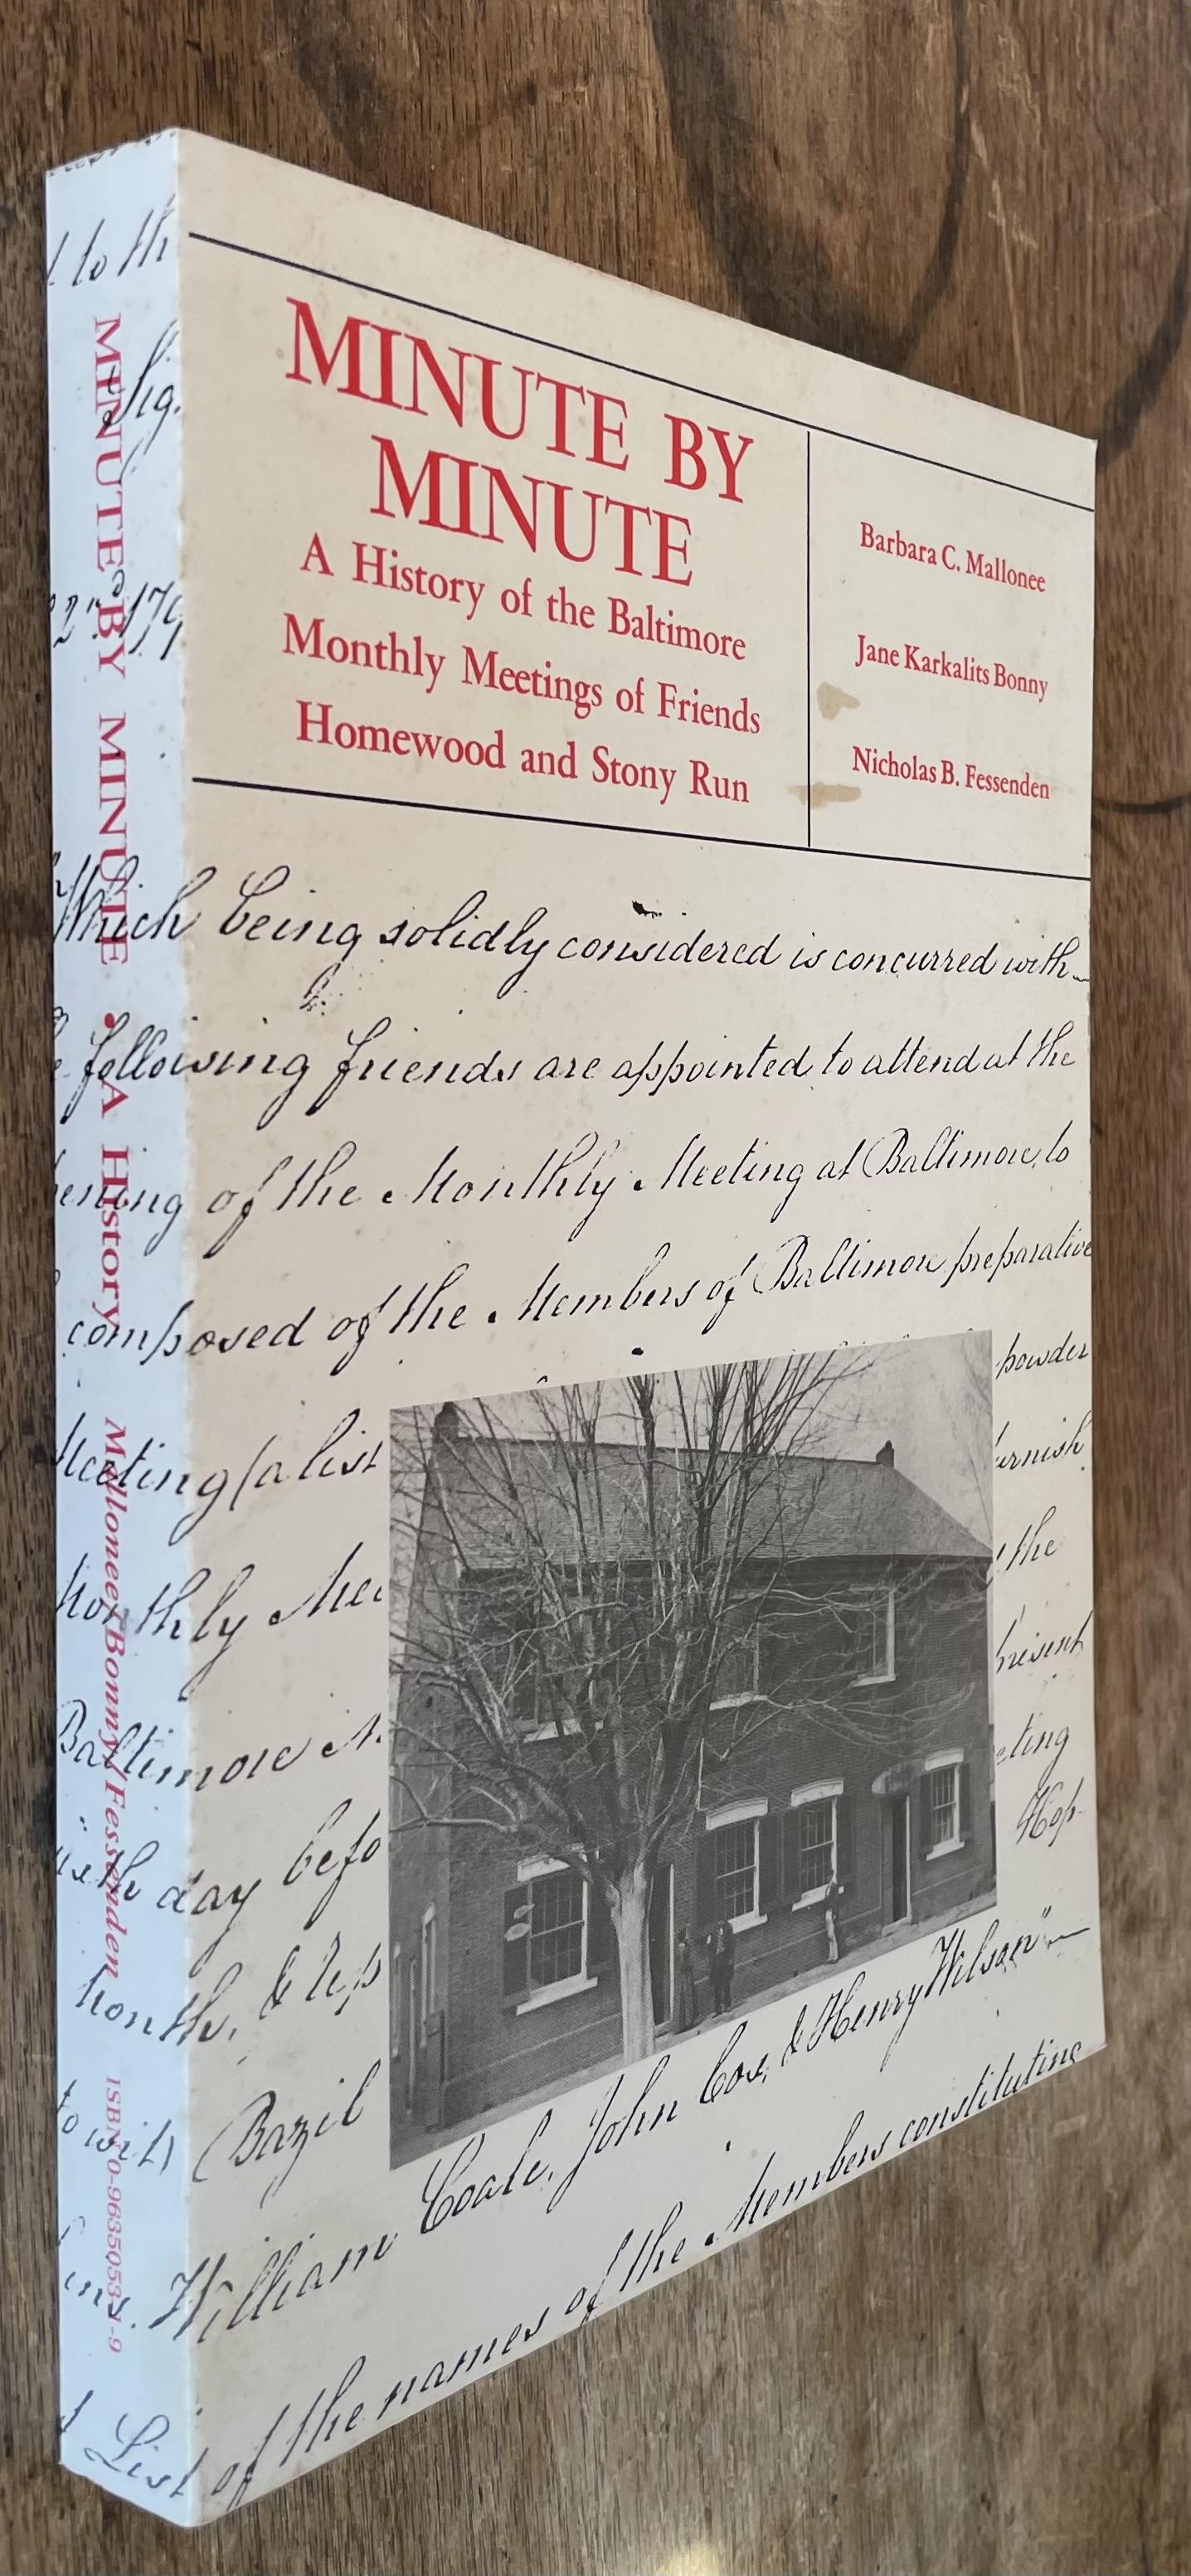 MINUTE BY
MINUTE
A History of the Baltimore
Monthly Meetings of Friends
Homewood and Stony Run
Barbara C. Mallonee
Jane Karkalits Bonny
Nicholas B. Fessenden
Which being solidly considered is concurred with
following friends are appointed to attend at the
of the Monthly Meeting at Baltimore, to
composed of the Members of Baltimore preparative
Meeting (a list powder
Monthly Mee
the
Baltimore present
day befo eting
Month, & Hop-
to wit, Bazil
ins. William Coale, John Cox, & Henry Wilson"
List of the names of the Members constituting
to th
Sig.
MINUTE BY MINUTE • A History
Mallonee/Bonny/Fessenden
ISBN 0-9635053-1-9